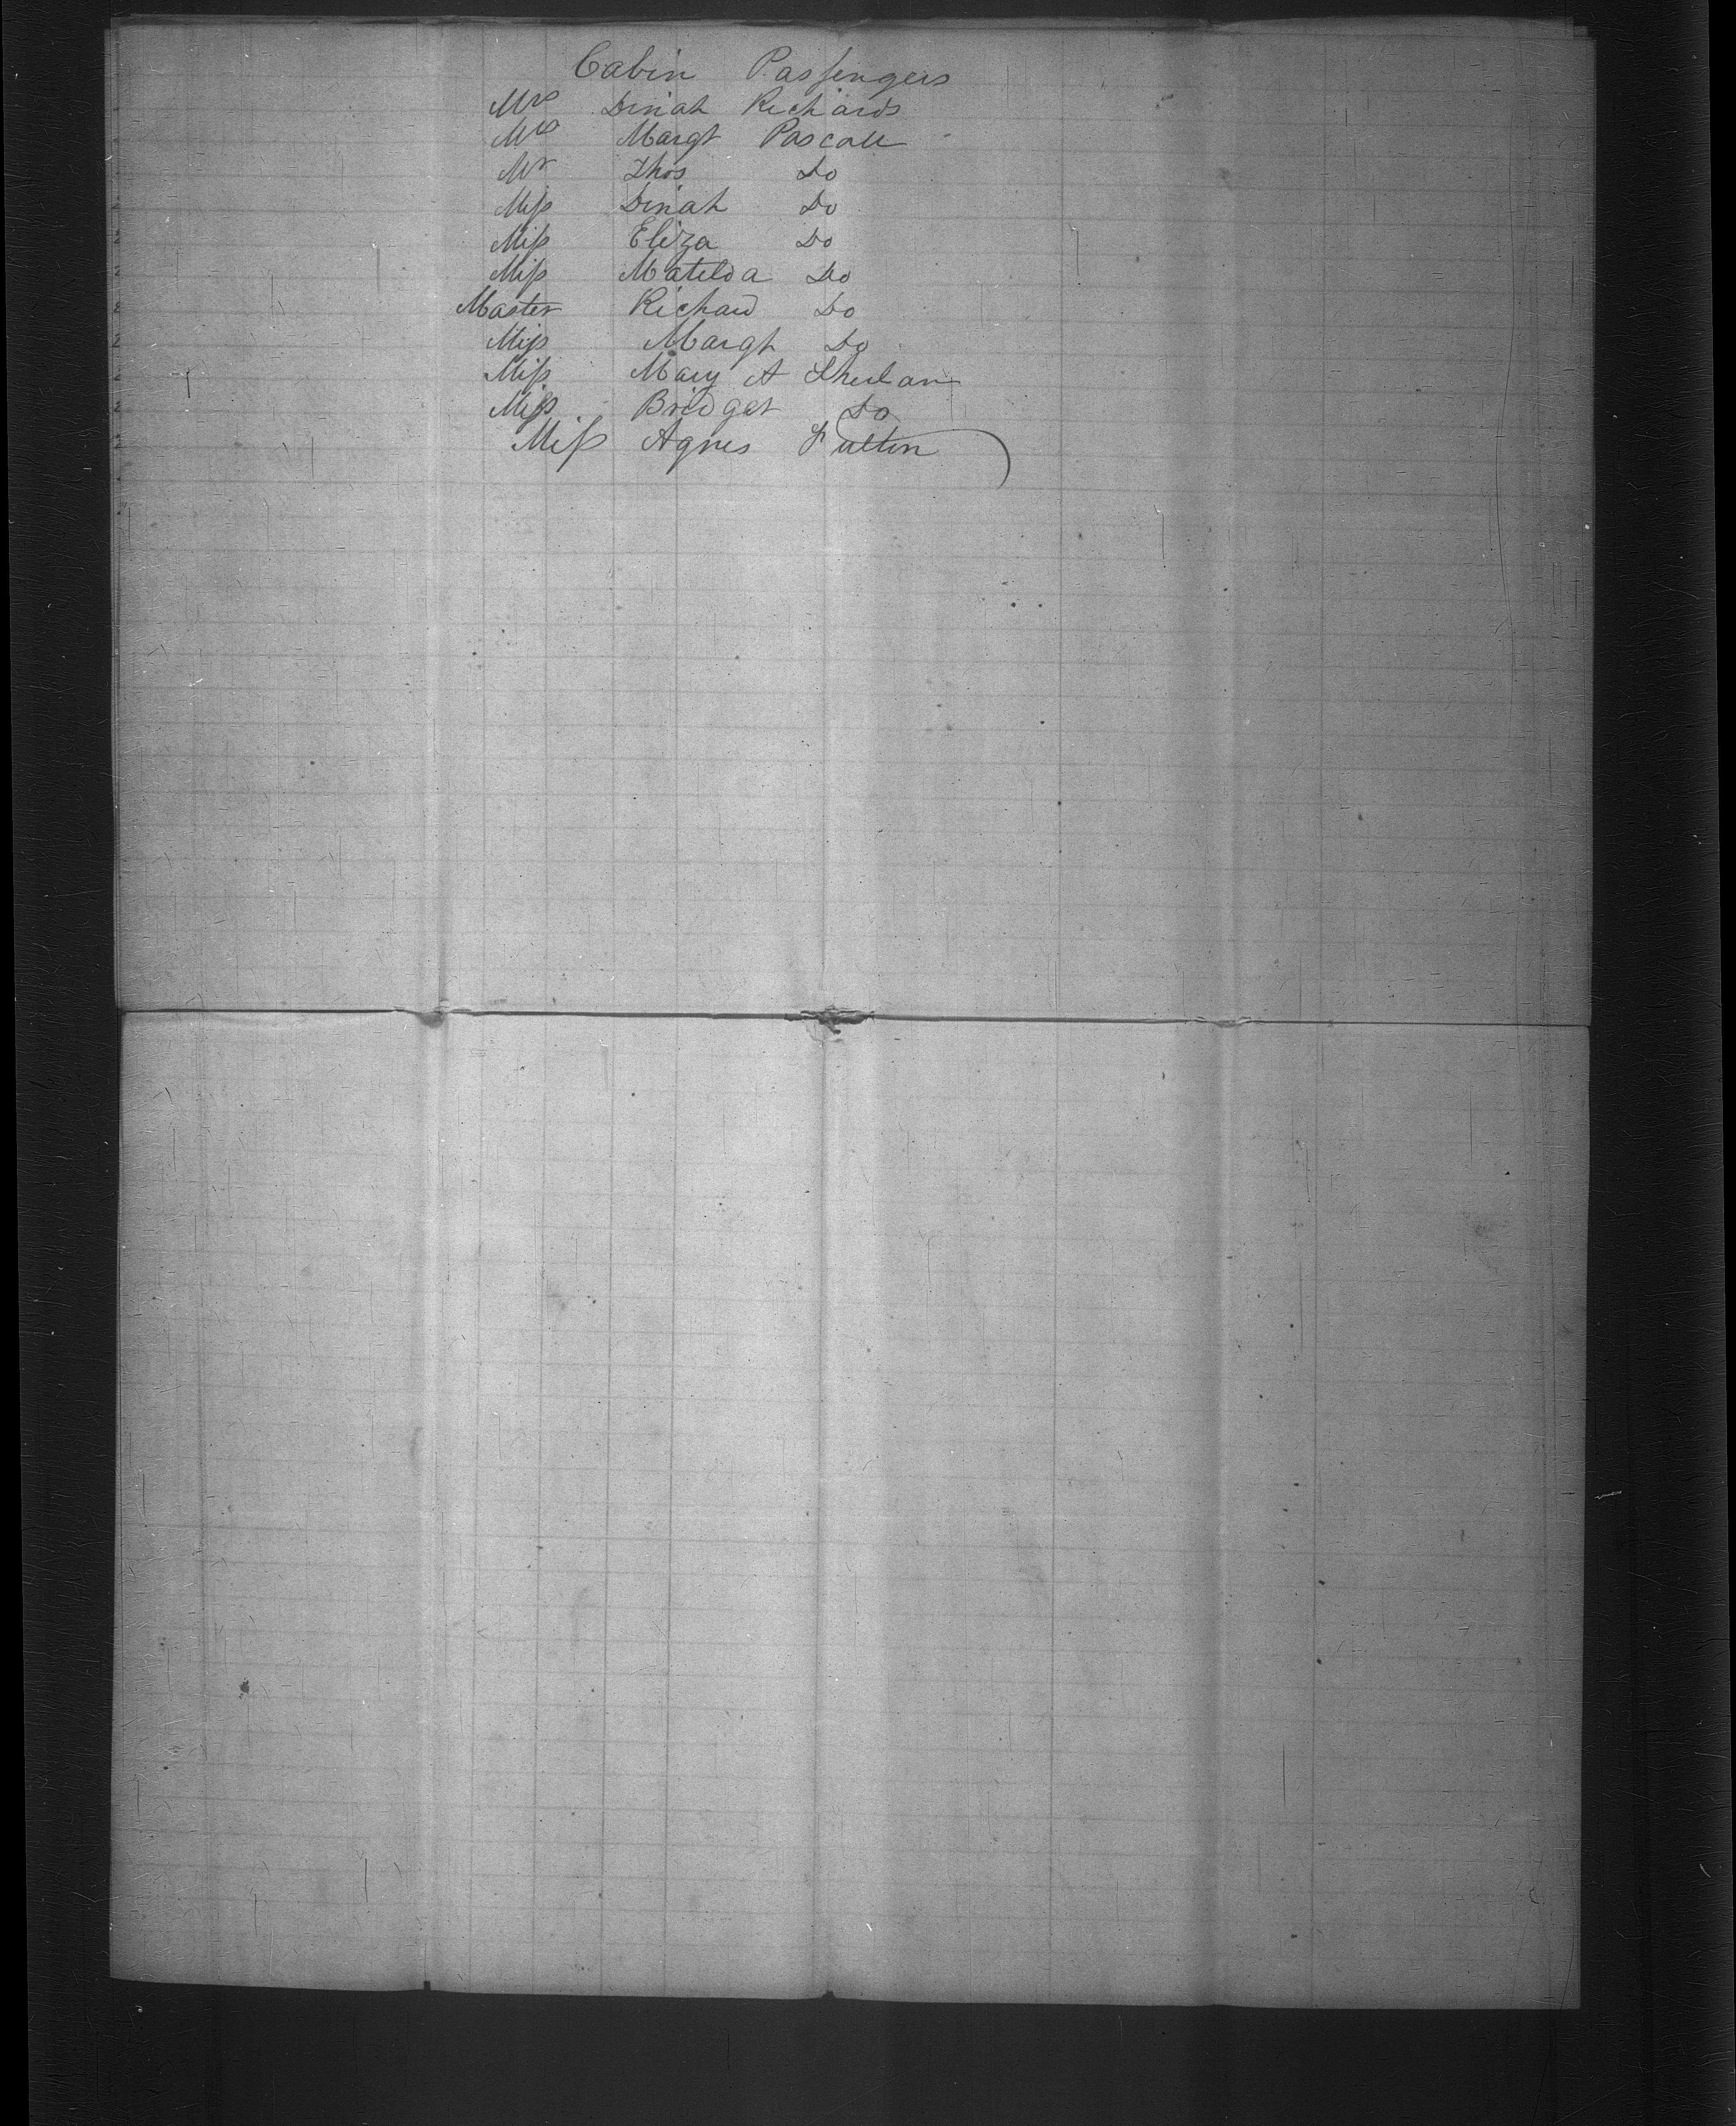 Cabin Passengers
Mrs Dinah Richards
Mrs Margt Pascall
Mr Thos Do
Miss Dinah Do
Miss Eliza Do
Miss Matilda Do
Master Richard Do
Miss Margt Do
Miss Mary A
Miss Bridget Do
Miss Agnes Fulton